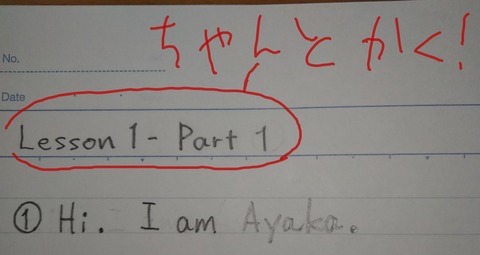 No.
ちゃんとかく!
Date
Lesson 1 - Part 1
① Hi. I am Ayaka.